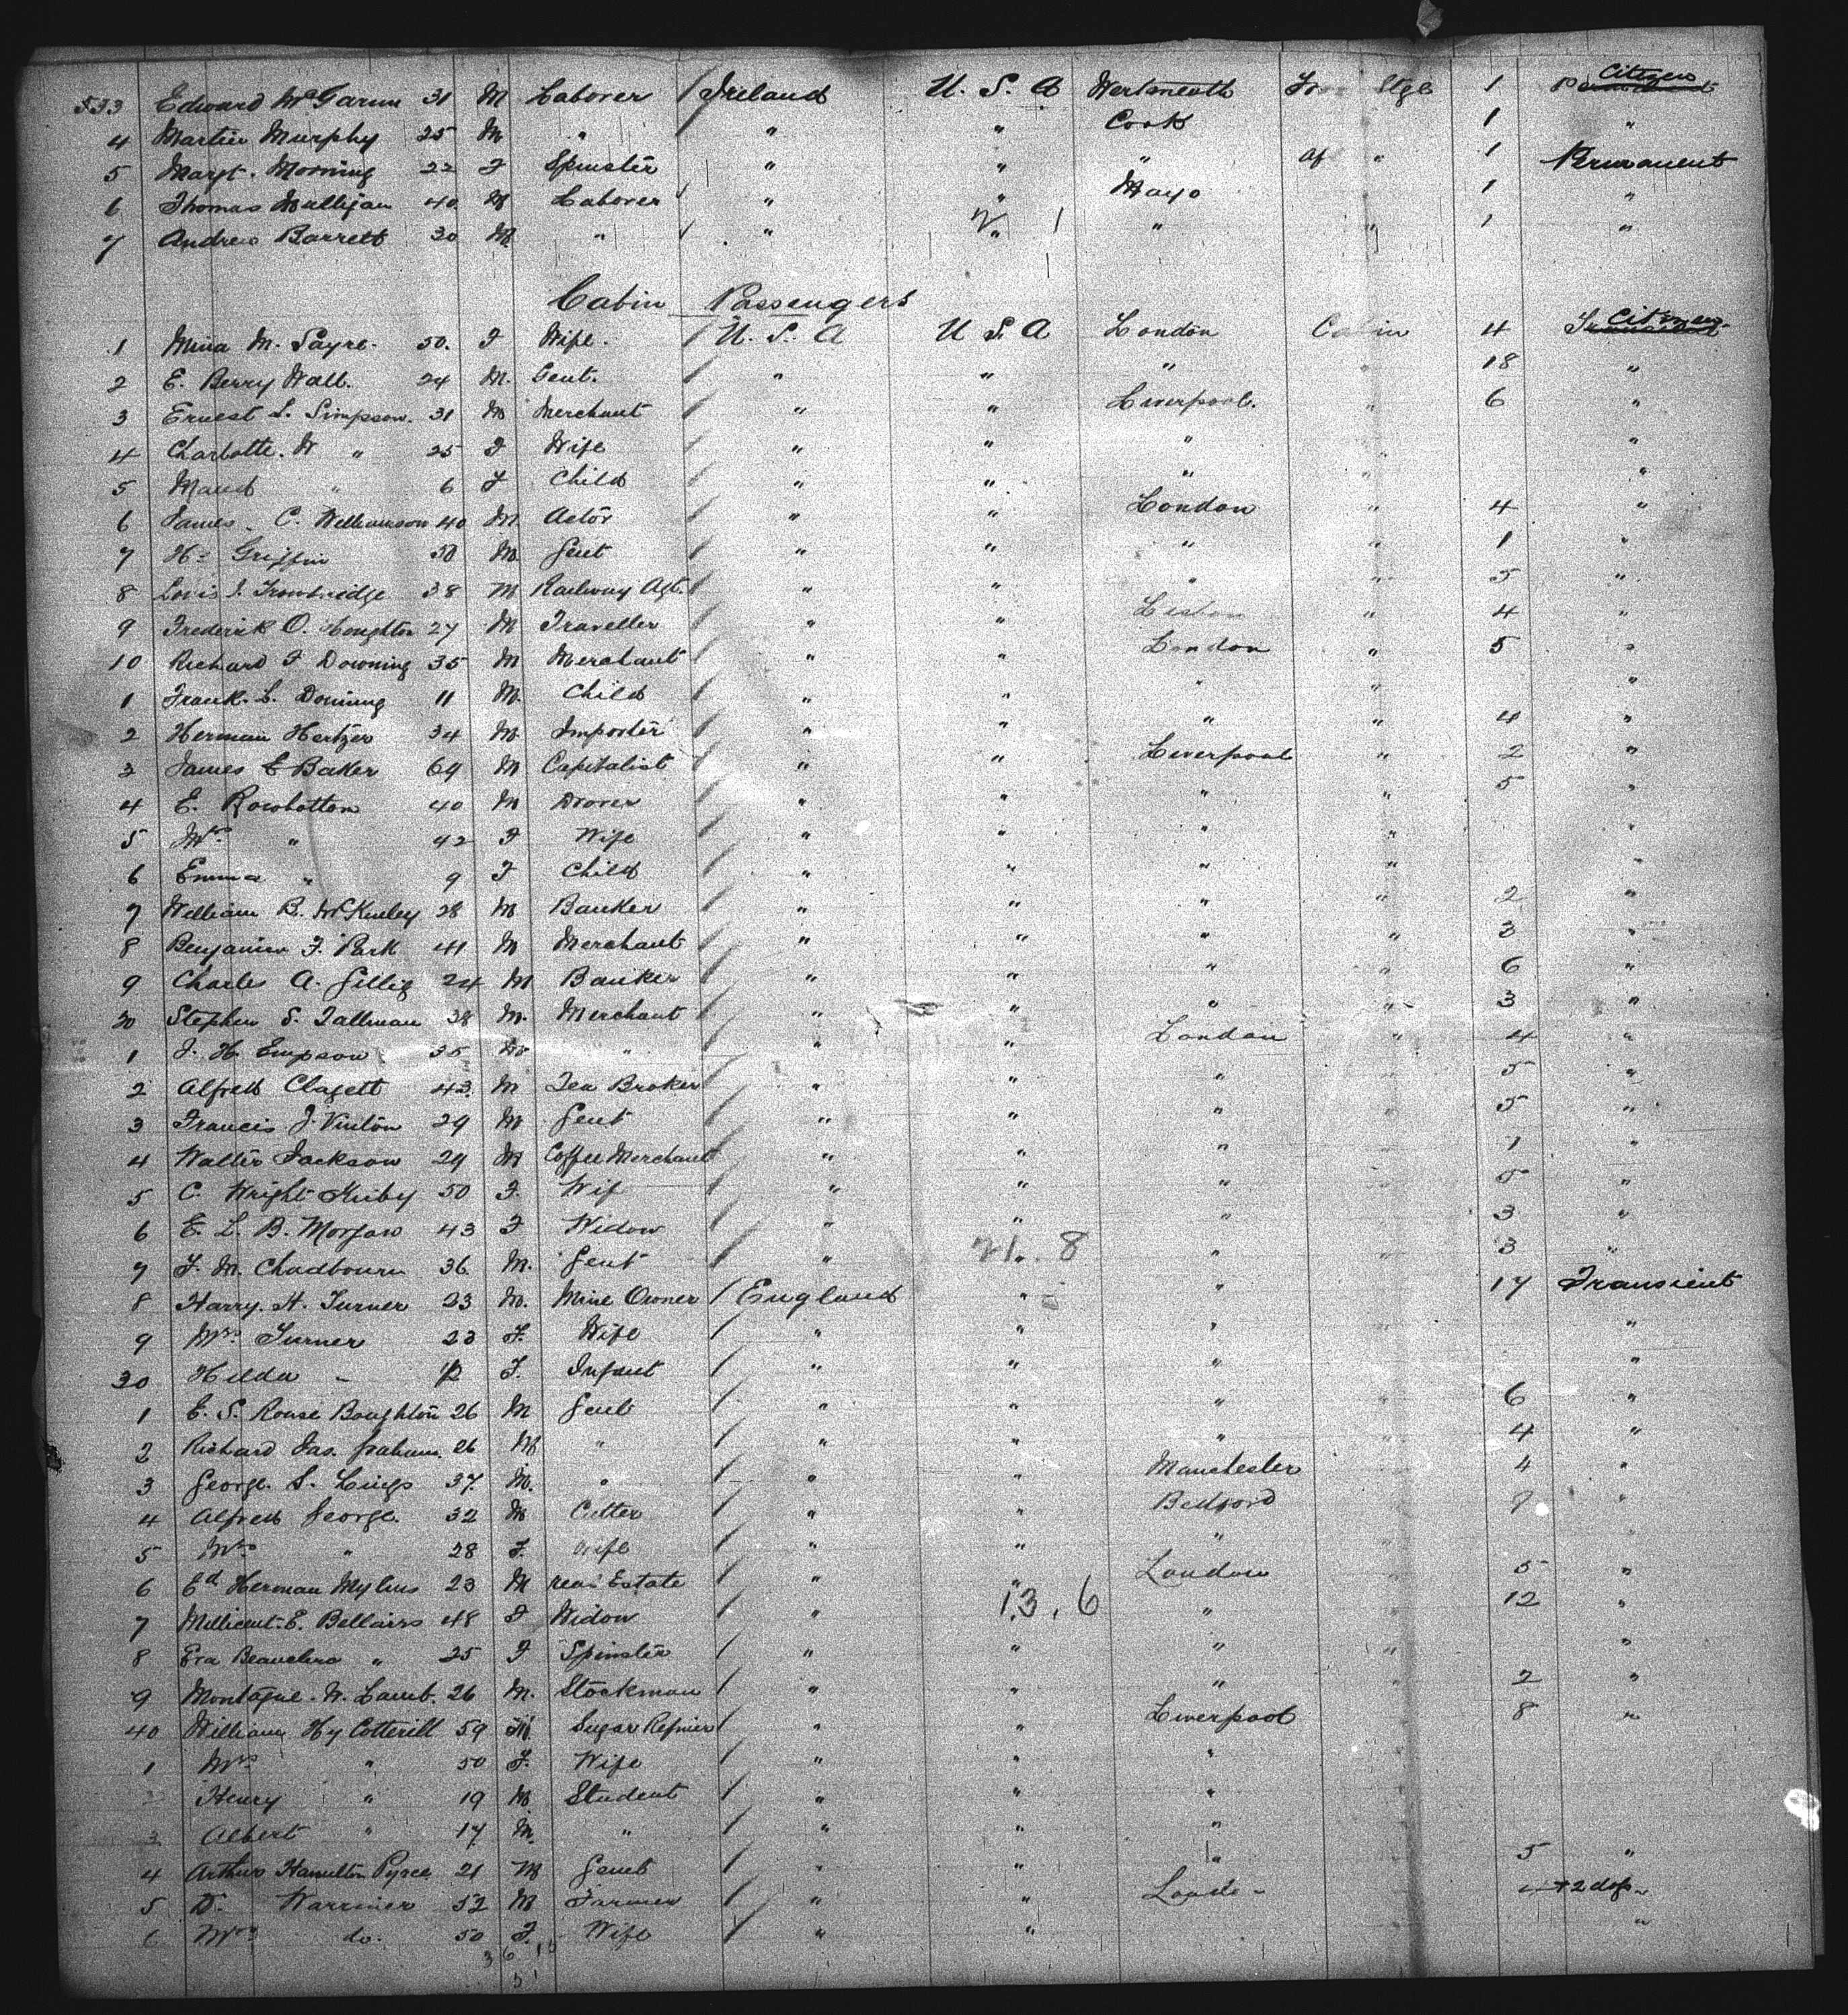 533 Edward McGarun 31 M Laborer / Ireland U. S. A Westmeath Stge 1 Citizen
4 Martin Murphy 25 M " " " Cork 1 "
5 Margt. Morring 22 F Spinster " " " " 1 Permanent
6 Thomas Mulligan 40 M Laborer / " " Mayo 1 "
7 Andrew Barrett 30 M " / " " " " 1 "
Cabin Passengers
1 Mina M. Sayre 50. F Wife. / U. S. A U S A London Cabin 4 Citizen
2 E. Berry Wall. 24 M. Gent. / " " " 18 "
3 Ernest L. Simpson. 31 M Merchant / " " Liverpool. " 6 "
4 Charlotte. W " 25 F Wife / " " " " "
5 Maud " 6 F Child / " " " " "
6 James C. Williamson 40 M. Actor / " " London " 4 "
7 Hy Griffin 38 M. Gent / " " " " 1 "
8 Lovis J. Trowbridge 38 M Railway Agt. / " " " " 5 "
9 Frederick O. Houghton 27 M Traveller / " " " 4 "
10 Richard F Downing 35 M Merchant / " " London " 5 "
1 Frank. L. Downing 11 M. Child / " " " " "
2 Herman Hertzer 34 M. Importer / " " " " 4 "
3 James E Baker 69 M Capitalist / " " Liverpool " 2 "
4 E. Rowbottom 40 M Drover / " " " " 5 "
5 Mrs " 42 F Wife / " " " " "
6 Emma " 9 F Child / " " " " "
7 William B. McKinley 28 M Banker / " " " " 2 "
8 Benjamin F. Park 41 M Merchant / " " " " 3 "
9 Charles A. Gillig 24 M Banker / " " " " 6 "
20 Stephen S. Tallman 38 M. Merchant / " " " " 3 "
1 J. H. Empson 35 M " " " London " 4 "
2 Alfred Clagett 43. M Tea Broker / " " " 5 "
3 Francis J. Vinton 29 M Gent / " " " " 5 "
4 Walter Jackson 29 M Coffee Merchant / " " " " 1 "
5 C. Wright Kirby 50 F. Wif / " " " " 5 "
6 E. L. B. Morgan 43 F Widow / " " " " 3 "
7 F. M. Chadbourn 36. M. Gent / " 21. 8 " " 3 "
8 Harry. H. Turner 23 M. Mine Owner / England " " 17 Transient
9 Mrs. Turner 23 F. Wife / " " " "
30 Hilda - F. Infant / " " " "
1 E. S. Rouse Boughton 26 M Gent / " " " " 6 "
2 Richard Jas. Graham. 26 M " / " " " " 4 "
3 George. S. 37. M. " / " " Manchester 4 "
4 Alfred George. 32 M Cutter / " " Bedford "
5 Mrs " 28 F. Wife / " " "
6 Ed Herman Mylius 23 M real Estate / " " London 5 "
7 Millicent. E. Bellairs 48 F Widow / " 13. 6 " 12 "
8 Eva Beauclerc " 25 F Spinster / " " " " "
9 Montague. W. Lamb. 26 M. Stockman / " " " " 2 "
40 William Hy Cotterill 59 M. Sugar Refiner / " " Liverpool 8 "
1 Mrs " 50 F. Wife / " " "
2 Henry " 19 M. Student / " " "
3 Albert " 17 M. " / " " "
4 Arthur Hamilton 21 M Gent / " " " 5 "
5 D. Warriner 52 M Farmer / " " "
6 Mrs. do. 50 F. Wife / " " "